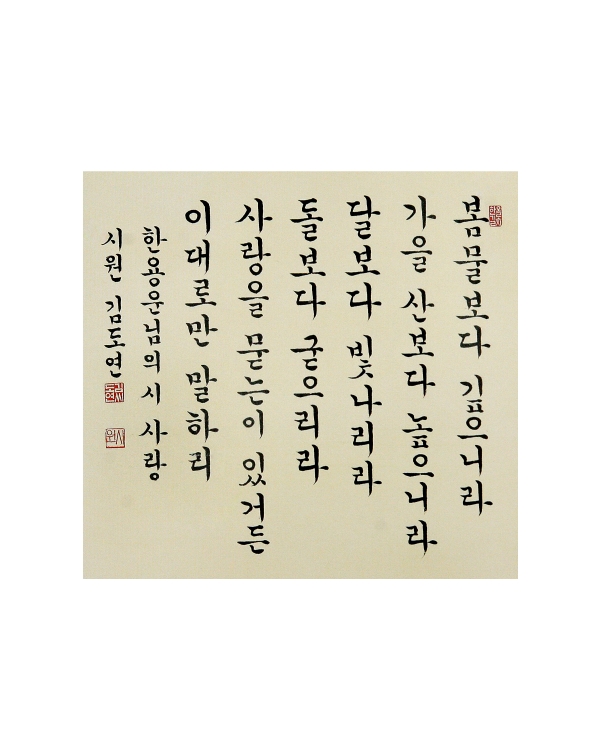 봄물보다 깊으니라
가을 산보다 높으니라
달보다 빛나리라
돌보다 굳으리라
사랑을 묻는이 있거든
이대로만 말하리
한용운님의 시 사랑
시원 김도연